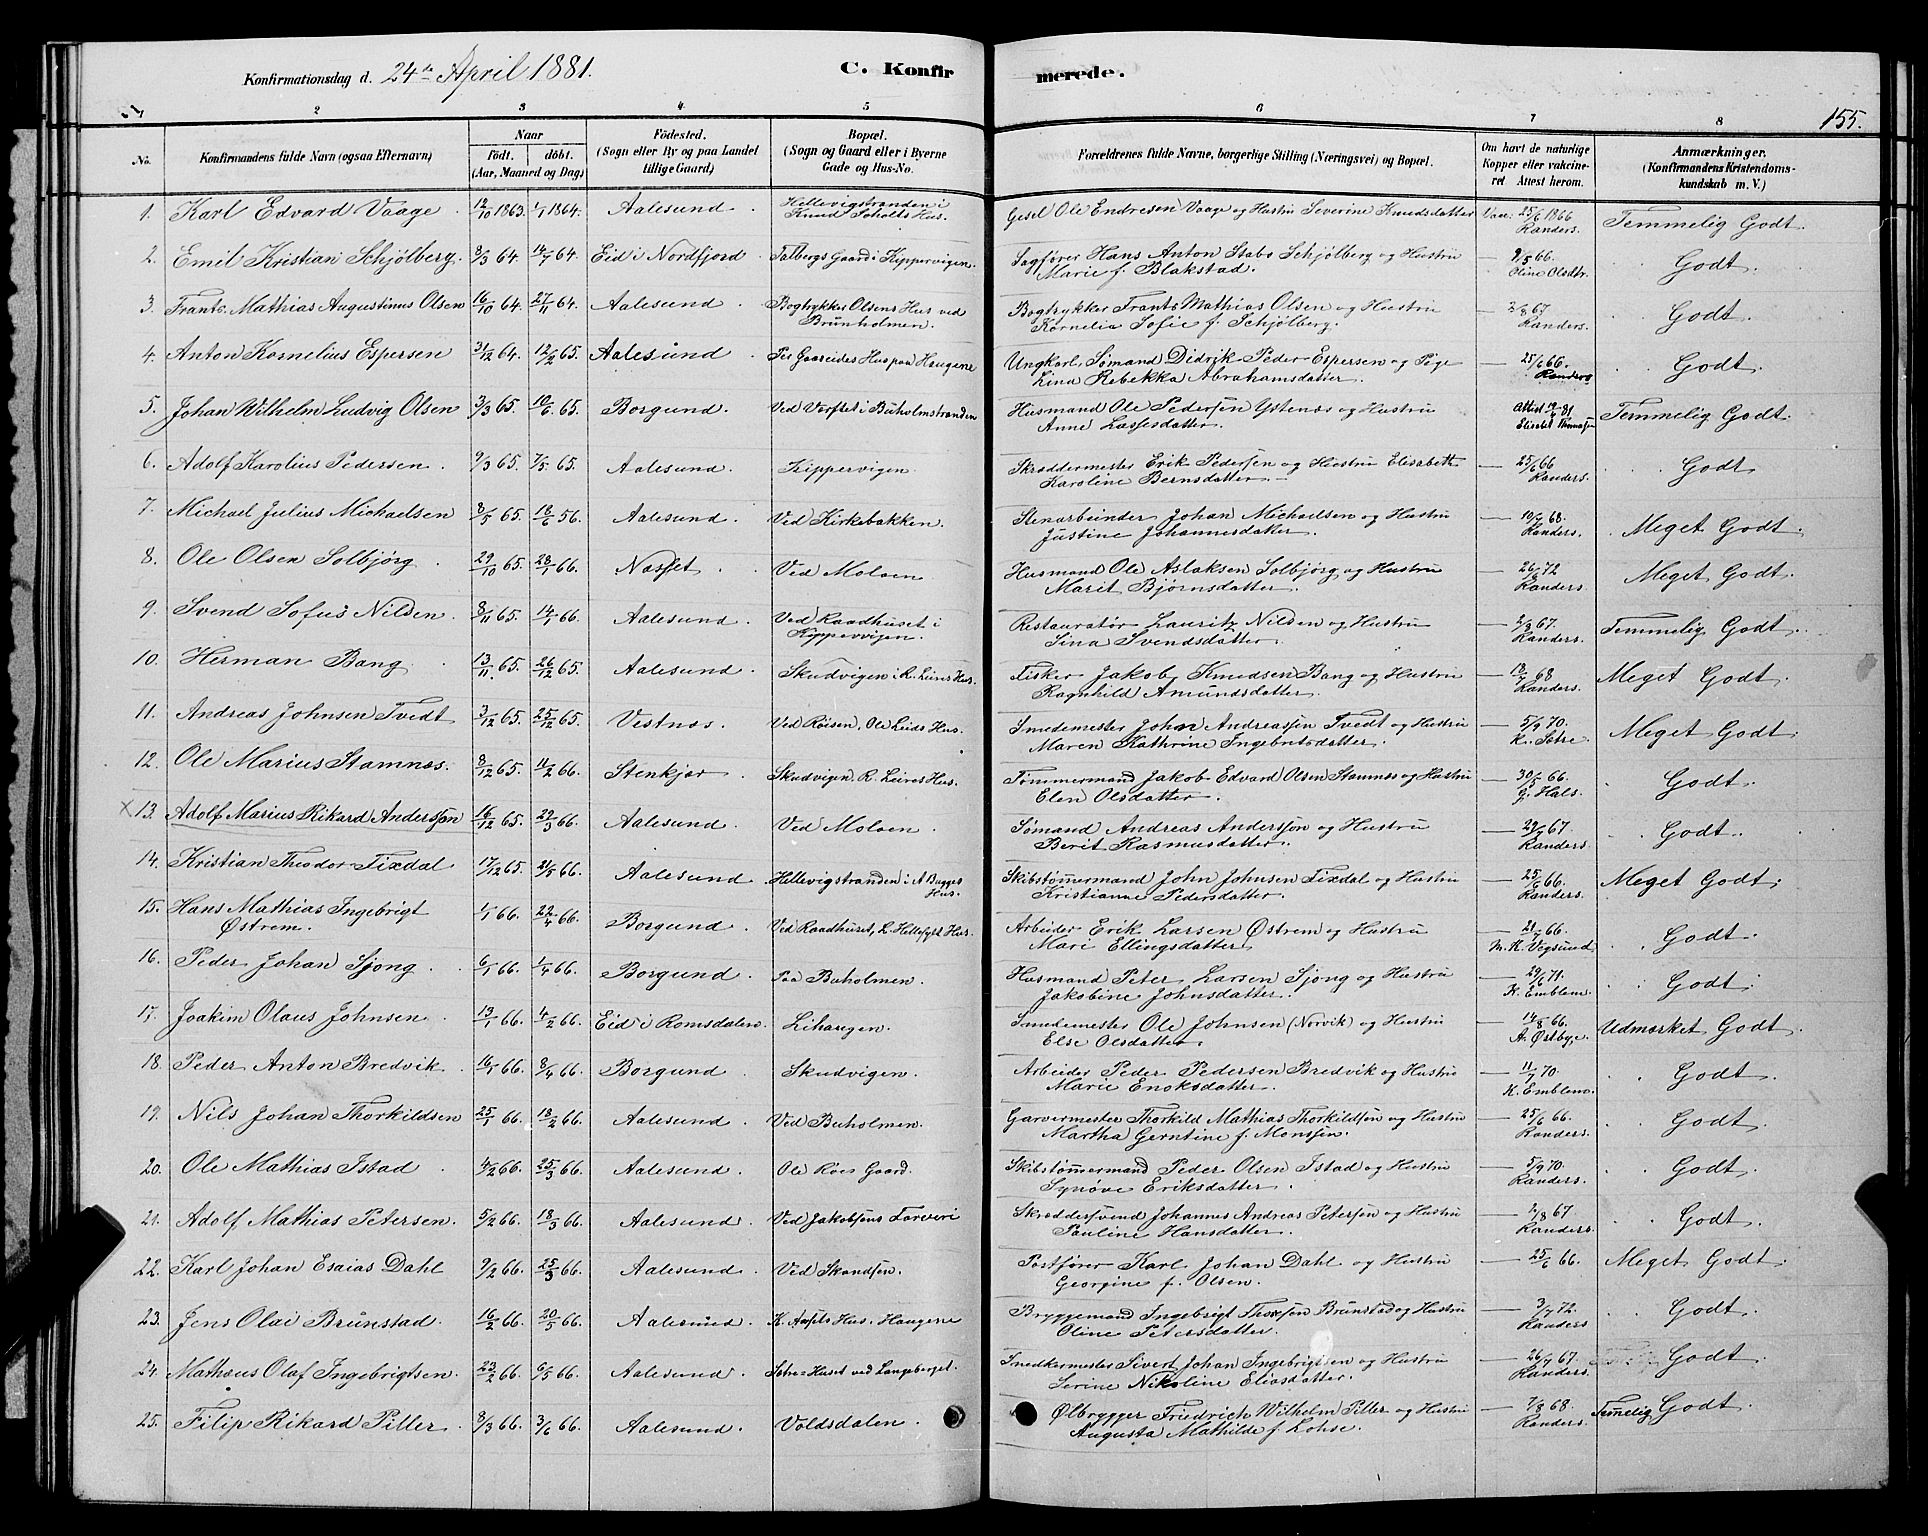 Konfirmationsdag d. 24de April 1881. C. Konfirmerede. 155.
2 3 4 5 6 7 8
No. Konfirmandens fulde Navn (ogsaa Efternavn) Naar født. døbt. (Aar, Maaned og Dag) Fødested. (Sogn eller By og paa Landet tillige Gaard) Bopæl. (Sogn og Gaard eller i Byerne Gade og Hus-No. Forældrenes fulde Navne, borgerlige Stilling (Næringsvei) og Bopæl. Om havt de naturlige Kopper eller vakcineret Attest herom. Anmærkninger. (Konfirmandens Kristendomskundskab m. V.)
1. Karl Edvard Vaage. 12/10 1863. 1/1 1864. Aalesund Hellevigstranden i Knud Scholts Hus. Gesel Ole Endresen Vaage og Hustru Severine Knudsdatter Vac. 25/6 1866 Randers. Temmelig Godt.
2. Emil Kristian Schjølberg. 8/3 64. 14/7 64. Eid i Nordfjord Talbergs Gaard i Kippervigen. Sagfører Hans Anton Stabo Schjølberg og Hustru Marie f. Blakstad. 9/5 66. Eline Olsdtr. Godt.
3. Frants Mathias Augustinus Olsen 16/10 64. 27/11 64. Aalesund Bogtrykker Olsens Hus ved Brunholmen. Bogtrykker Frants Mathias Olsen og Hustru Kornelia Sofie f. Schjølberg. 2/8 67 Randers. Godt.
4. Anton Kornelius Espersen 31/12 64. 12/2 65. Aalesund Per Gaareides Hus paa Haugene Ungkarl, Sømand Didrik Peder Espersen og Pige Lina Rebekka Abrahamsdatter. 25/6 66. Randers Godt.
5. Johan Wilhelm Ludvig Olsen 3/3 65. 10/6 65. Borgund. Ved Værftet i Buholmstranden Husmand Ole Pedersen Ystenæs og Hustru Anne Lassesdatter. Attest 19/4 81 Elisabet Thomasen Temmelig Godt.
6. Adolf Karolius Pedersen. 9/3 65. 7/5 65. Aalesund. Kippervigen. Skræddermester Erik Pedersen og Hustru Elisabeth Karoline Bernsdatter. 25/6 66 Randers. Godt
7. Michael Julius Michaelsen 8/5 65. 18/6 56. Aalesund. Ved Kirkebakken. Stenarbeider Johan Michaelsen og Hustru Justine Johannesdatter. 10/7 68. Randers. Meget Godt.
8. Ole Olsen Solbjørg 29/10 65. 28/1 66. Næsset Ved Moloen Husmand Ole Aslaksen Solbjørg og Hustru Marit Bjørnsdatter. 26/8 72 Randers. Meget Godt.
9. Svend Sofus Nilsen. 8/11 65. 14/1 66. Aalesund. Ved Raadhuset i Kippervigen. Restauratør Lauritz Nilsen og Hustru Sina Svendsdatter. 2/8 67. Randers. Temmelig Godt.
10. Herman Bang 13/11 65. 26/12 65. Aalesund. Skudvigen i R. Leires Hus. Fisker Jakob Knudsen Bang og Hustru Ragnhild Amundsdatter. 18/7 68 Randers. Meget Godt.
11. Andreas Johnsen Tvedt 3/12 65. 25/12 65. Vestnæs. Ved Røisen, Ole Leids Hus. Smedemester John Andreassen Tvedt og Hustru Maren Kathrine Ingebritsdatter. 5/9 70. K. Sætre. Meget Godt.
12. Ole Marius Stamnæs. 8/12 65. 11/2 66. Stenkjær. Skudvigen, R. Leires Hus. Tømmermand Jakob Edvard Olsen Stamnæs og Hustru Elen Olsdatter. 30/5 66. G. Hals. Godt.
× 13. Adolf Marius Rikard Anderssen 16/12 65. 29/3 66. Aalesund. Ved Moloen. Sømand Andreas Anderssen og Hustru Berit Rasmusdatter. 29/7 67. Randers. Godt.
14. Kristian Theodor Tixdal 17/12 65. 21/5 66. Aalesund Hellevigstranden i A. Bugges Hus. Skibstømmermand John Johnsen Tixdal og Hustru Kristianne Pedersdatter. 25/6 66. Randers. Meget Godt.
15. Hans Mathias Ingebrigt Østrem. 1/1 66. 22/4 66. Borgund Ved Raadhuset, L. Hellesylt Hus. Arbeider Erik Larsen Østrem og Hustru Mari Ellingsdatter. 21/7 66. M. K. Vegsund Godt.
16. Peder Johan Sjong. 6/1 66. 1/4 66. Borgund Paa Buholmen. Husmand Peter Larsen Sjong og Hustru Jakobine Johnsdatter. 29/6 71. K. Emblem. Godt.
17. Joakim Olaus Johnsen. 13/1 66. 4/2 66. Eid i Romsdalen. Lihaugen. Smedemester Ole Johnsen (Norvik) og Hustru Else Olsdatter. 14/8 66. A. Østbye. Udmærket Godt.
18. Peder Anton Bredvik. 16/1 66. 8/4 66. Borgund Skudvigen. Arbeider Peder Pedersen Bredvik og Hustru Marie Enoksdatter. 11/7 70. K. Emblem. Godt.
19. Nils Johan Thorkildsen 25/1 66. 18/2 66. Aalesund. Ved Buholmen. Garvermester Thorkild Mathias Thorkildsen og Hustru Martha Gerntine f. Monsen. 25/6 66. Randers. Godt.
20. Ole Mathias Istad 4/2 66. 25/3 66. Aalesund. Ole Røes Gaard. Skibstømmermand Peder Olsen Istad og Hustru Synøve Eriksdatter. 5/9 70. Randers. Godt.
21. Adolf Mathias Petersen. 5/2 66. 18/3 66. Aalesund. Ved Jakobsens Farveri Skræddersvend Johannes Andreas Petersen og Hustru Pauline Hansdatter. 2/8 67 Randers. Godt.
22. Karl Johan Esaias Dahl 9/2 66. 25/3 66. Aalesund. Ved Skandsen. Postfører Karl Johan Dahl og Hustru Georgine f. Olsen. 25/6 66. Meget Godt.
23. Jens Olai Brunstad. 16/2 66. 20/5 66. Aalesund. K. Aspels Hus. Haugene Bryggemand Ingebrigt Thorsen Brunstad og Hustru Oline Petersdatter. 3/7 72. Randers. Godt.
24. Mathæus Olaf Ingebrigtsen. 23/2 66. 6/5 66. Aalesund. Sætre-Huset ved Langeberget. Snedkermester Sivert Johan Ingebrigtsen og Hustru Serine Nikoline Eliasdatter. 26/7 67. Randers. Godt.
25. Filip Rikard Piller. 8/3 66. 3/6 66. Aalesund. Voldsdalen. Ølbrygger Friedrich Wilhelm Piller og Hustru Augusta Mathilde f. Lohse. 7/8 68. Randers. Temelig Godt.